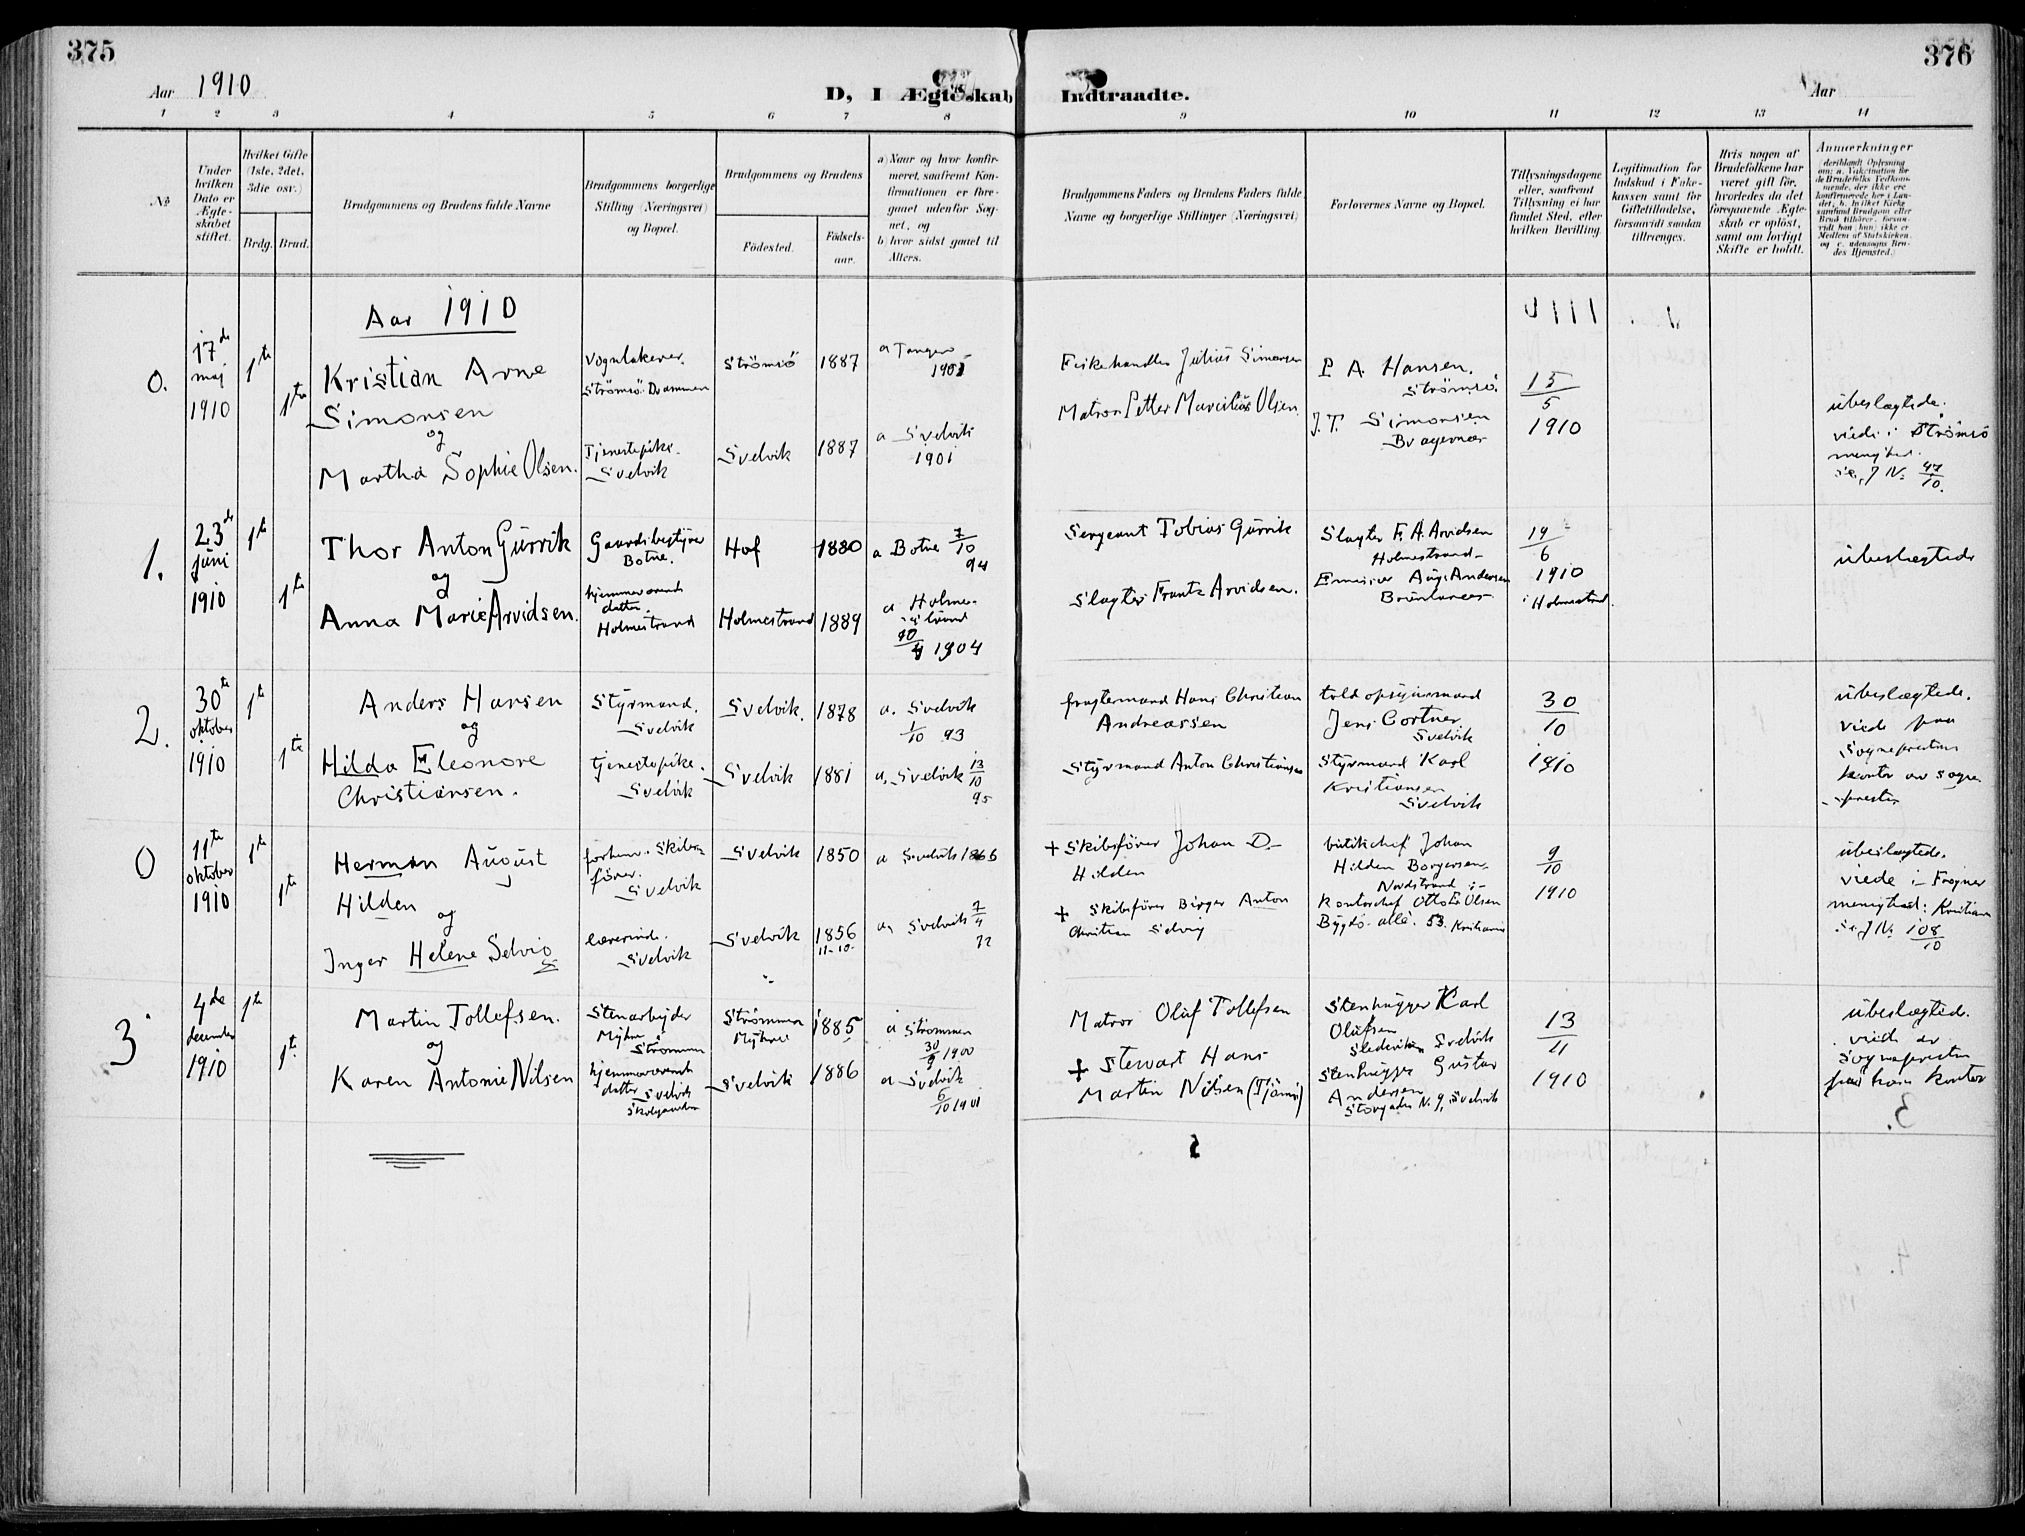 375
376
Aar 1910
D, I Ægteskab Indtraadte.
Aar
1 2 3 4 5 6 7 8 9 10 11 12 13 14
№
Under hvilken Dato er Ægteskabet stiftet.
Hvilket Gifte (1ste, 2det, 3die osv.)
Brdg. Brud.
Brudgommens og Brudens fulde Navne
Brudgommens borgerlige Stilling (Næringsvei) og Bopæl.
Brudgommens og Brudens
Födested.
Födselsaar.
a) Naar og hvor konfirmeret, saafremt Konfirmationen er foregaaet udenfor Sognet, og
b) hvor sidst gaaet til Alters.
Brudgommens Faders og Brudens Faders fulde Navne og borgerlige Stillinger (Næringsvei)
Forlovernes Navne og Bopæl.
Tillysningsdagene eller, saafremt Tillysning ei har fundet Sted, efter hvilken Bevilling.
Legitimation for Indskud i Enkekassen samt for Giftetilladelse, forsaavidt saadan tiltrænges.
Hvis nogen af Brudefolkene har været gift för, hvorledes da det foregaaende Ægteskab er oplöst, samt om lovligt Skifte er holdt.
Anmærkninger
Aar 1910
0.
17de maj 1910
1te
1te
Kristian Arne
Simonsen
og
Martha Sophie Olsen.
Vognlakerer.
Strömsö. Drammen
Tjenestepike.
Svelvik
Strömsö 1887
Svelvik 1887
a Tangen
a Svelvik
1901
Fiskehandler Julius Simonsen
Matros Petter Marcilius Olsen
P. A. Hansen.
Strömsö.
J. T. Simonsen
Bragernæs
15/5
1910
übeslægtede.
viede i Strömsö
menighed.
Se J № 47/10.
1.
23de juni 1910
1te
1te
Thor Anton Gürrik
og
Anna Marie Arvidsen.
Gaardsbestyrer
Botne.
hjemmeværende
datter.
Holmestrand
Hof 1880
Holmestrand 1889
a Botne 7/10 94
a Holmestrand
1904
Sergeant Tobias Gürrik
Slagter Frantz Arvidsen.
Slagter F. A. Arvidsen
Holmestrand
Emissær Aug. Andersen
19/6
1910
i Holmestrand.
übeslægtede
2.
30te oktober 1910
1te
1te
Anders Hansen
og
Hilda Eleonore
Christiansen.
Styrmand.
Svelvik
tjenestepike.
Svelvik
Svelvik. 1878
Svelvik 1881
a. Svelvik
1/10 93
a. Svelvik 13/10 95
fragtemand Hans Christian
Andreassen
Styrmand Anton Christiansen
toldopsynsmand
Jens Cortner
Svelvik
Styrmand Karl
Kristiansen
Svelvik
30/10
1910
übeslægtede.
viede paa
Sogneprestens
kontor av sogne-
presten
0
11te oktober 1910
1te
1te
Herman August
Hilden
og
Inger Helene Selvig
forhenv. Skibs-
förer.
Svelvik
lærerinde.
Svelvik
Svelvik 1850
Svelvik 1856
11-10-
a Svelvik 1866
a, Svelvik 7/4 72
+ Skibsförer Johan D.
Hilden
+ Skibsförer Birger Anton
Christian Selvig
butikchef Johan
Hilden Borgersen
Nordstrand
Kontorchef Otto Olsen
Bygdö allé. 53. Kristiania
9/10
1910
übeslægtede.
viede i Frogner
menighed: Kristiania
Se J № 108/10
3
4de december 1910
1te
1te
Martin Tollefsen.
og
Karen Antonie Nilsen
Stenarbejder
Myhre
Strömmen
hjemmeværende
datter Svelvik
Strömmen 1885
Myhre
Svelvik 1886
a Strömmen
30/9 1900
a Svelvik
6/10 1901
Matros Oluf Tollefsen
+ Stewart Hans
Martin Nilsen (Tjömö)
Stenhugger Karl
Olafsen
Svelvik
Stenhugger Gustav
Andersen
Storgaden N. 9, Svelvik
13/11
1910
übeslægtede.
viede av
Sognepresten
paa hans kontor